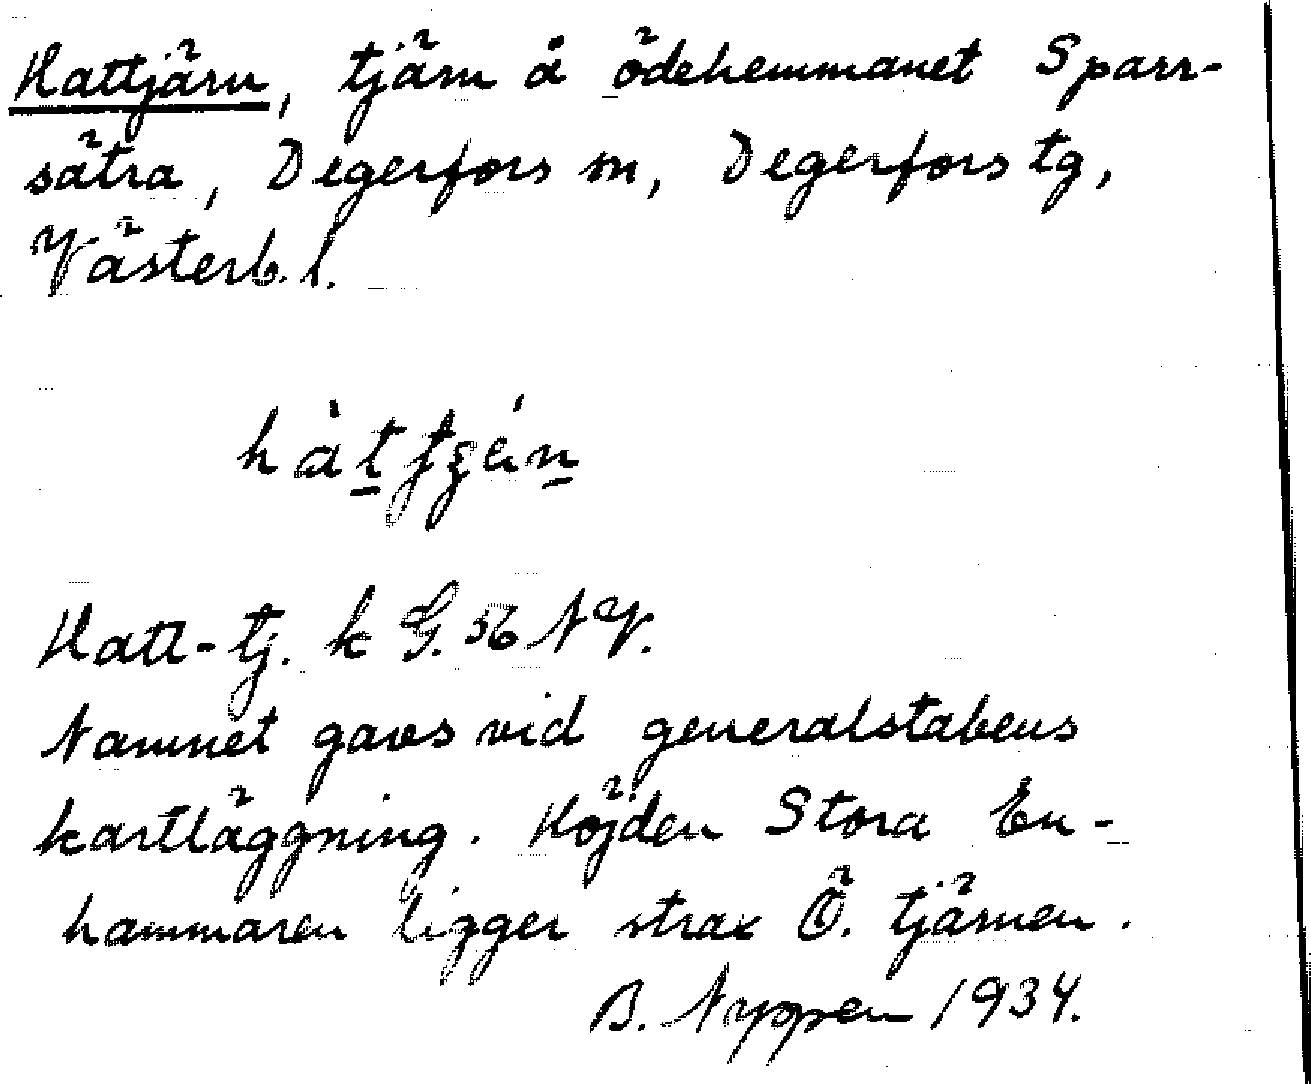 Hattjärn, tjärn å ödehemmanet Sparr-
sätra, Degerfors sn, Degerfors tg,
Västerb. l.
Hatt-tj. k G. 56 NV.
Namnet gavs vid generalstabens
kartläggning. Höjden Stora En-
hammaren ligger strax Ö. tjärnen.
B. Nyppen 1934.